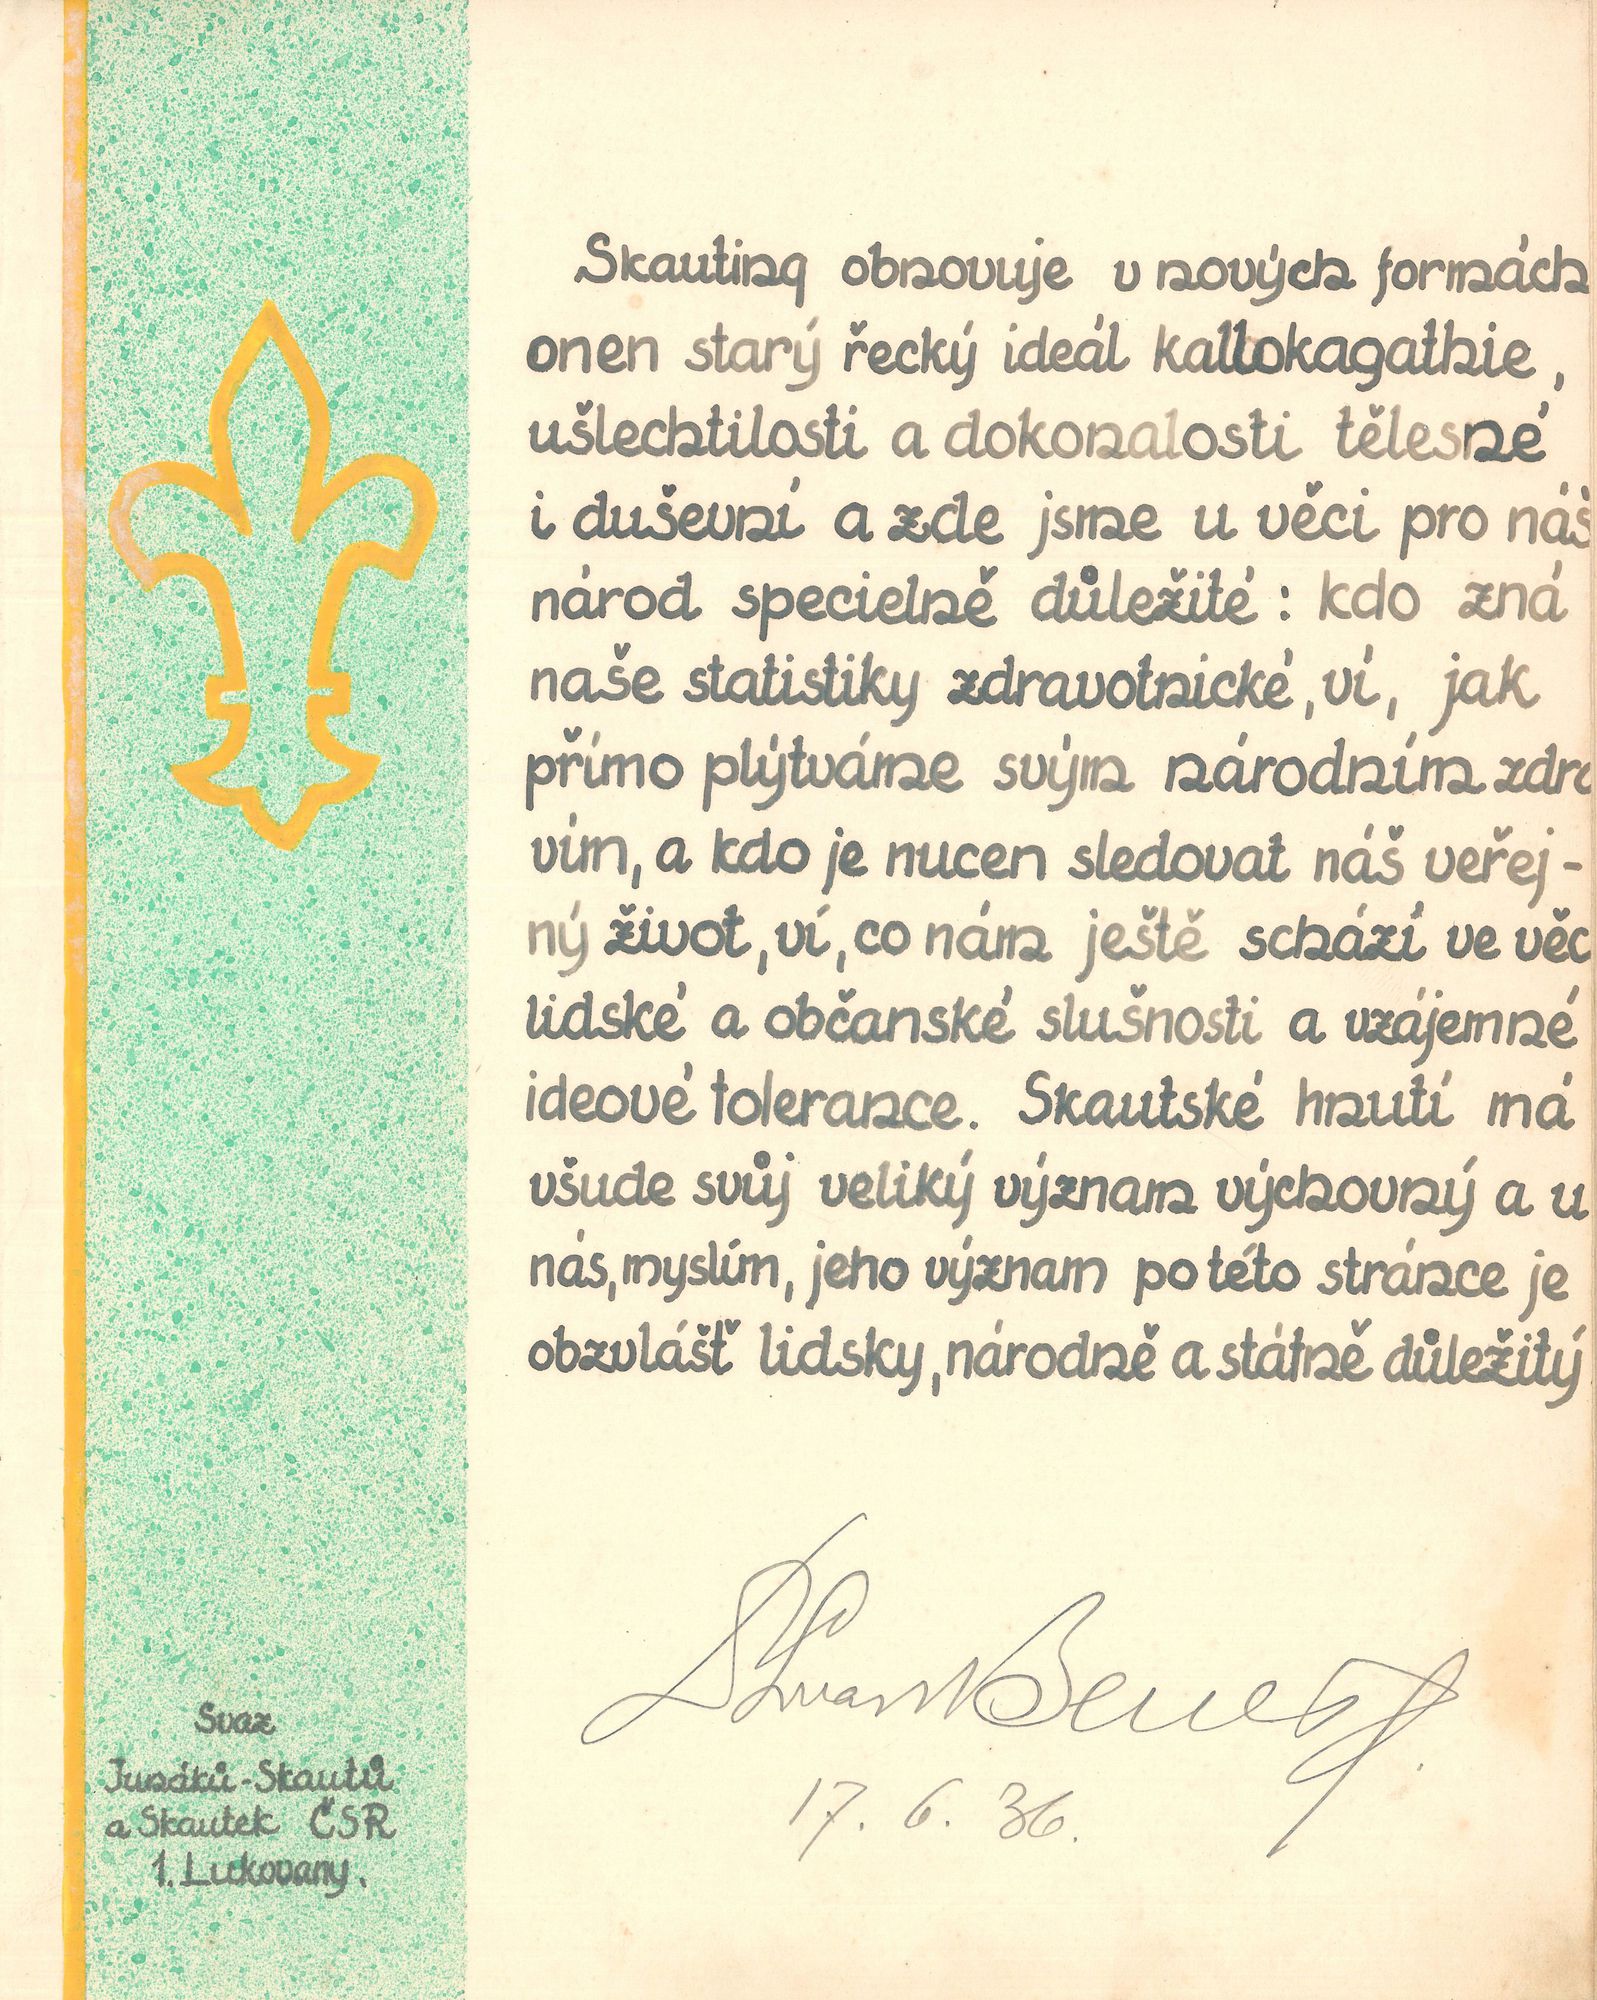 Skauting obnovuje v nových formách
onen starý řecký ideál kallokagathie,
ušlechtilosti a dokonalosti tělesné
i duševní a zde jsme u věci pro náš
národ specielně důležité: kdo zná
naše statistiky zdravotnické, ví, jak
přímo plýtváme svým národním zdra
vím, a kdo je nucen sledovat náš veřej-
ný život, ví, co nám ještě schází ve věc
lidské a občanské slušnosti a vzájemné
ideové tolerance. Skautské hnutí má
všude svůj veliký význam výchovný a u
nás, myslím, jeho význam po této stránce je
obzvlášť lidsky, národně a státně důležitý
Dr Edvard Beneš
17. 6. 36.
Svaz
Junáků-Skautů
a Skautek ČSR
1. Lukovany.